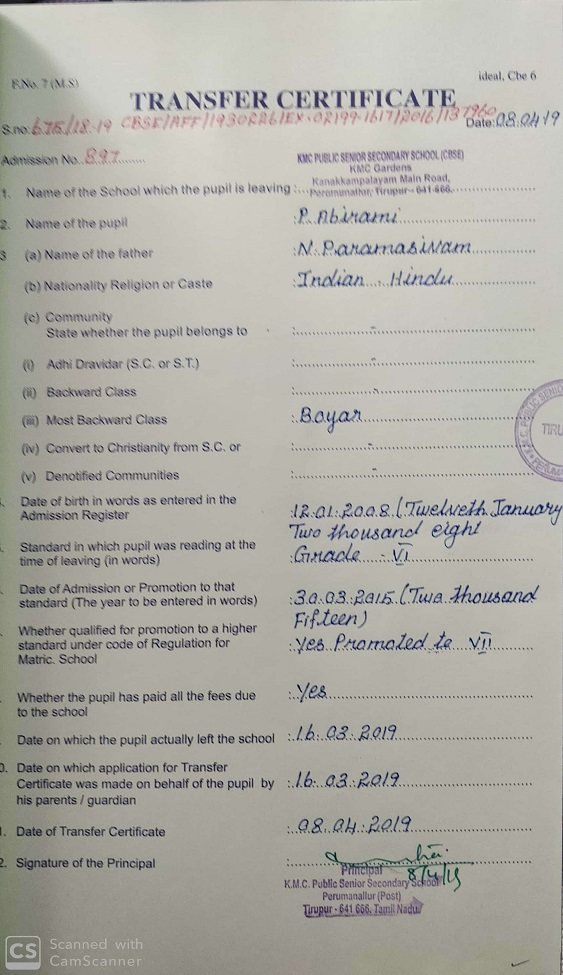 F.No. 7 (M.S)
ideal, Cbe 6
TRANSFER CERTIFICATE
S.no: 675/18-19 CBSE/AFF/1930226/EX-02199-1617/2016/137960 Date: 08.04.19
Admission No. 897
KMC PUBLIC SENIOR SECONDARY SCHOOL (CBSE)
KMC Gardens
Kanakkampalayam Main Road,
1. Name of the School which the pupil is leaving : Perumanallur, Tirupur - 641 666.
2. Name of the pupil : P. Abirami
3 (a) Name of the father : N. Paramasivam
(b) Nationality Religion or Caste : Indian - Hindu
(c) Community
State whether the pupil belongs to : -
(i) Adhi Dravidar (S.C. or S.T.) : -
(ii) Backward Class : -
(iii) Most Backward Class : Boyar
(iv) Convert to Christianity from S.C. or : -
(v) Denotified Communities : -
Date of birth in words as entered in the : 12.01.2008 (Twelveth January
Admission Register Two thousand eight
Standard in which pupil was reading at the
time of leaving (in words) : Grade - VI
Date of Admission or Promotion to that
standard (The year to be entered in words) : 30.03.2015 (Two thousand
Fifteen)
Whether qualified for promotion to a higher
standard under code of Regulation for : Yes Promoted to VII
Matric. School
Whether the pupil has paid all the fees due : Yes
to the school
Date on which the pupil actually left the school : 16.03.2019
0. Date on which application for Transfer
Certificate was made on behalf of the pupil by : 16.03.2019
his parents / guardian
1. Date of Transfer Certificate : 08.04.2019
2. Signature of the Principal :
Principal 8/4/19
K.M.C. Public Senior Secondary School
Perumanallur (Post)
Tirupur - 641 666. Tamil Nadu
CS Scanned with
CamScanner